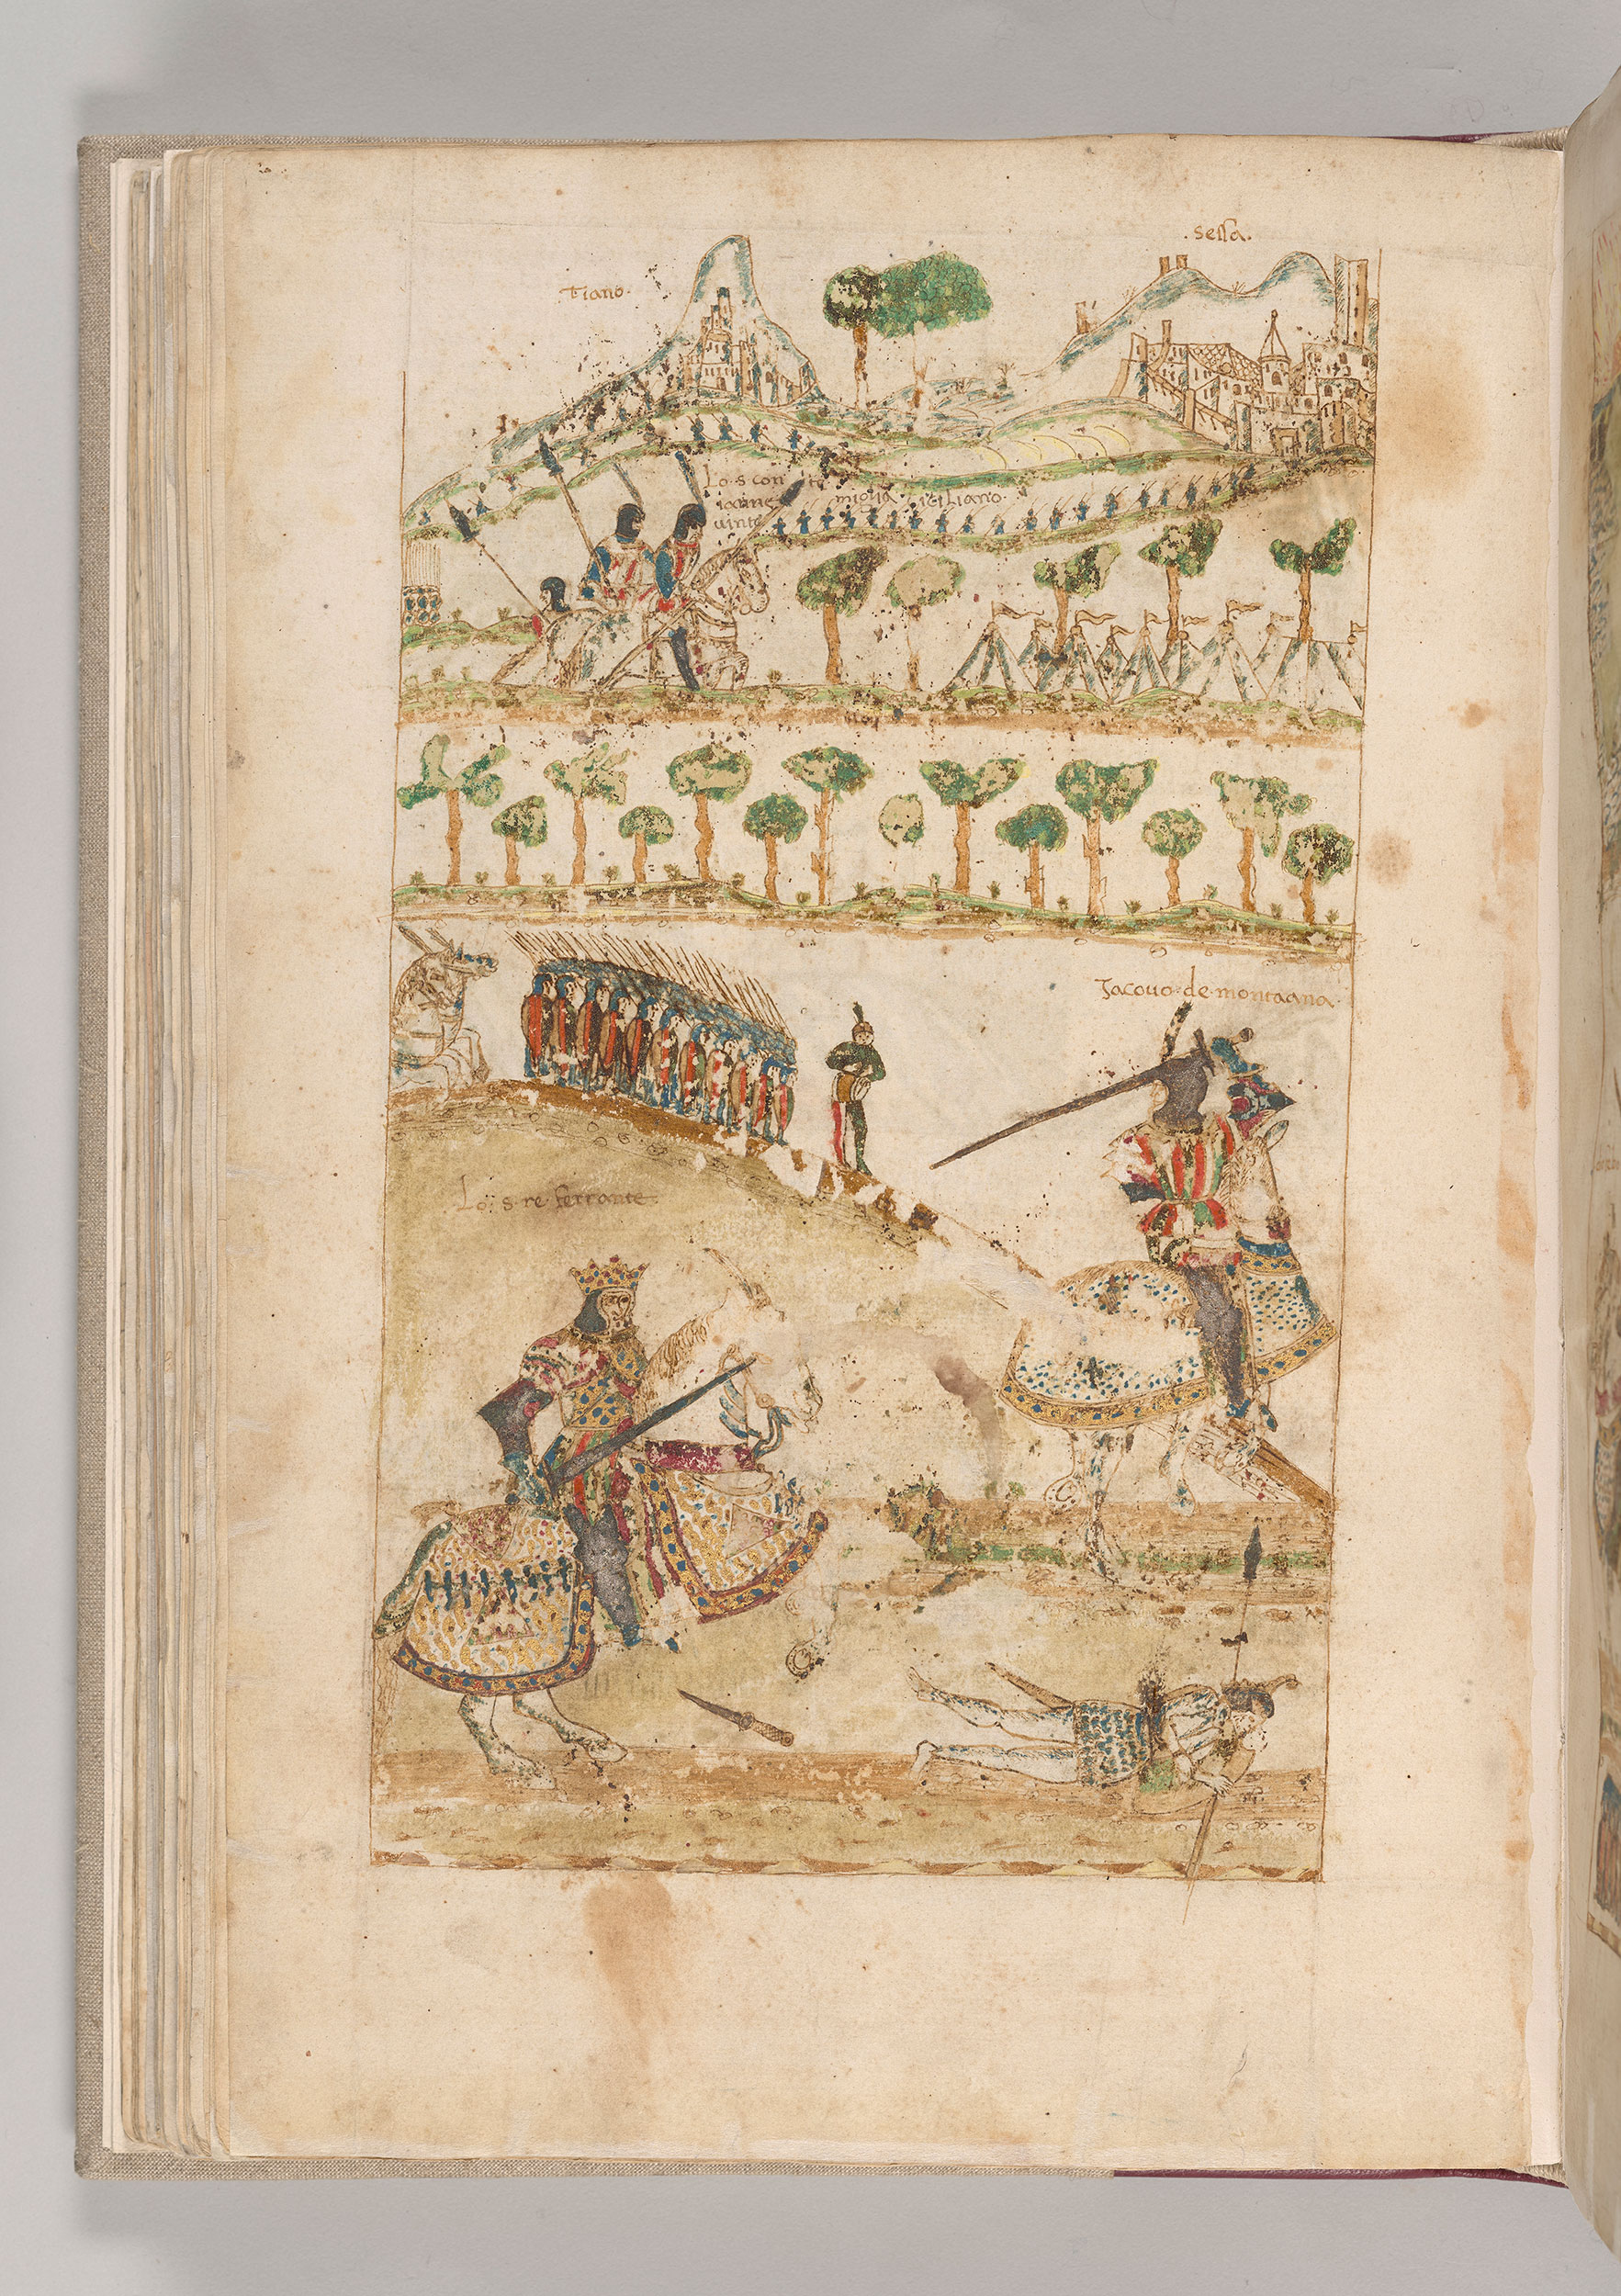 .sessa.
tiano.
Lo. s con te
ianne
uinte
miglia
Jacouo. de. montagna.
Lo. s. re. ferrante.